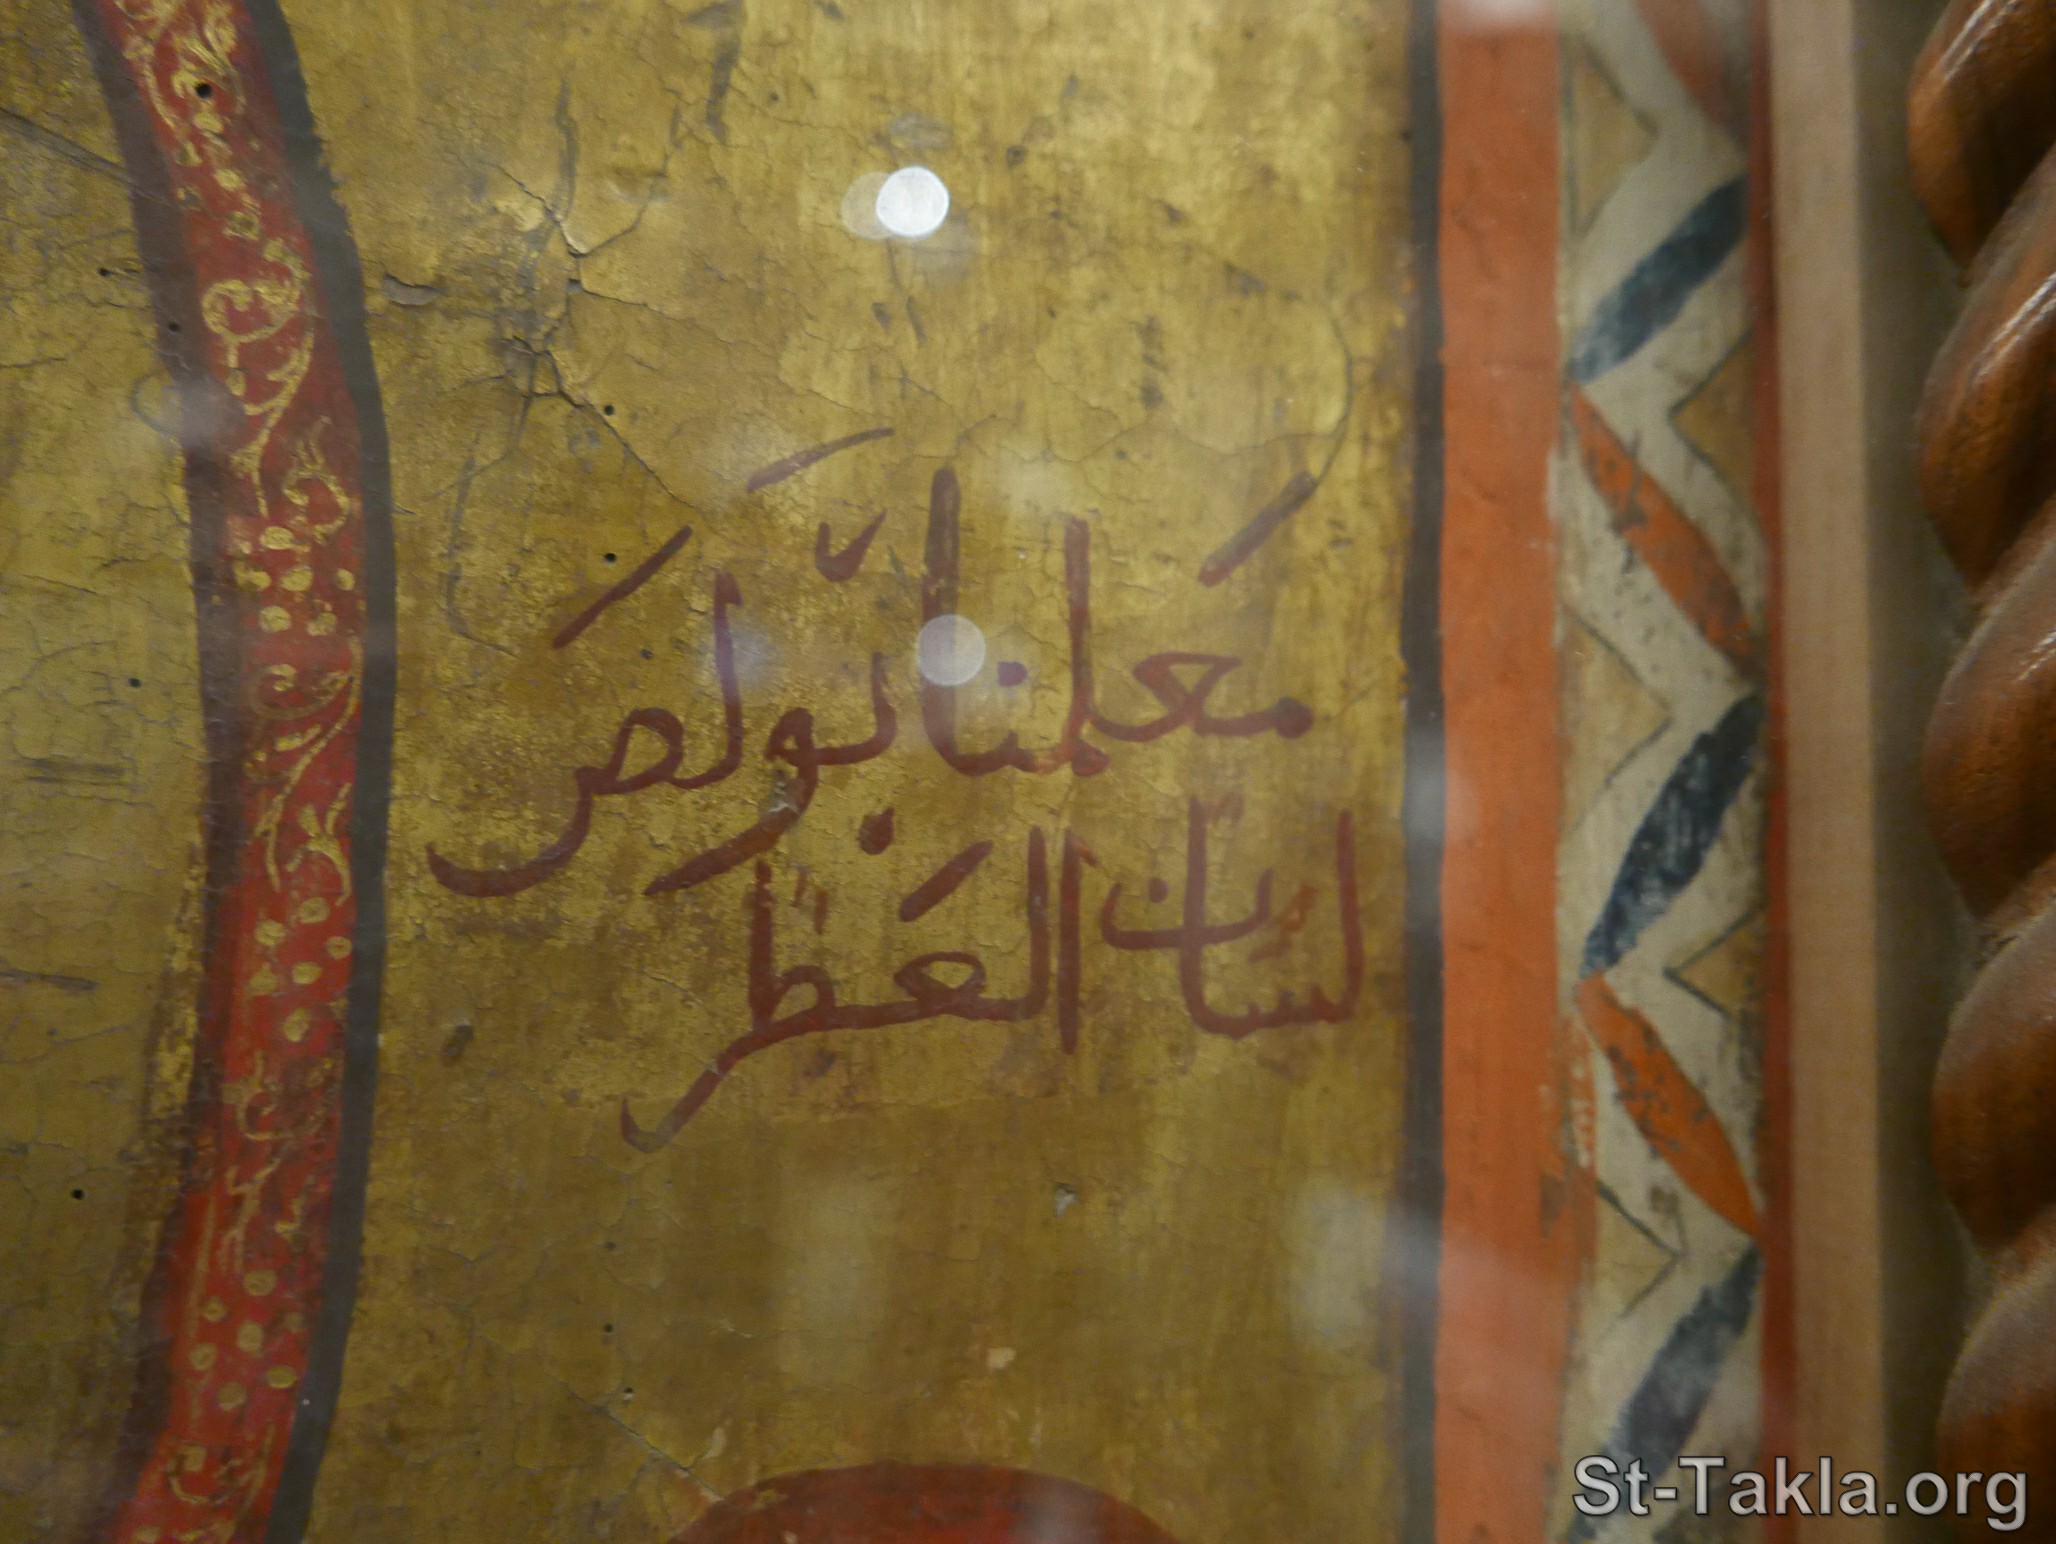 مَعلمنا بَوّلصَ
لسَان العَطر
St-Takla.org